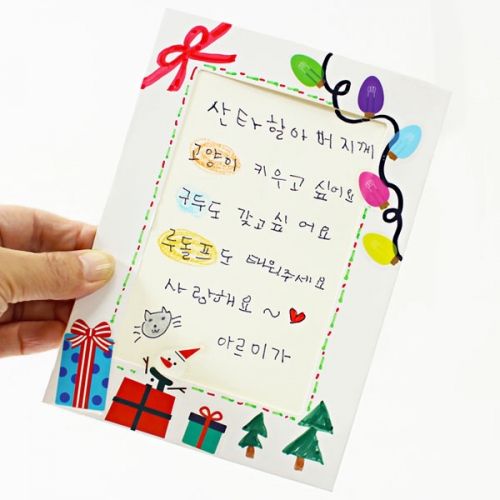 산타할아버지께
고양이 키우고 싶어요
구두도 갖고싶어요
루돌프도 태워주세요
사랑해요~♥
아르미가